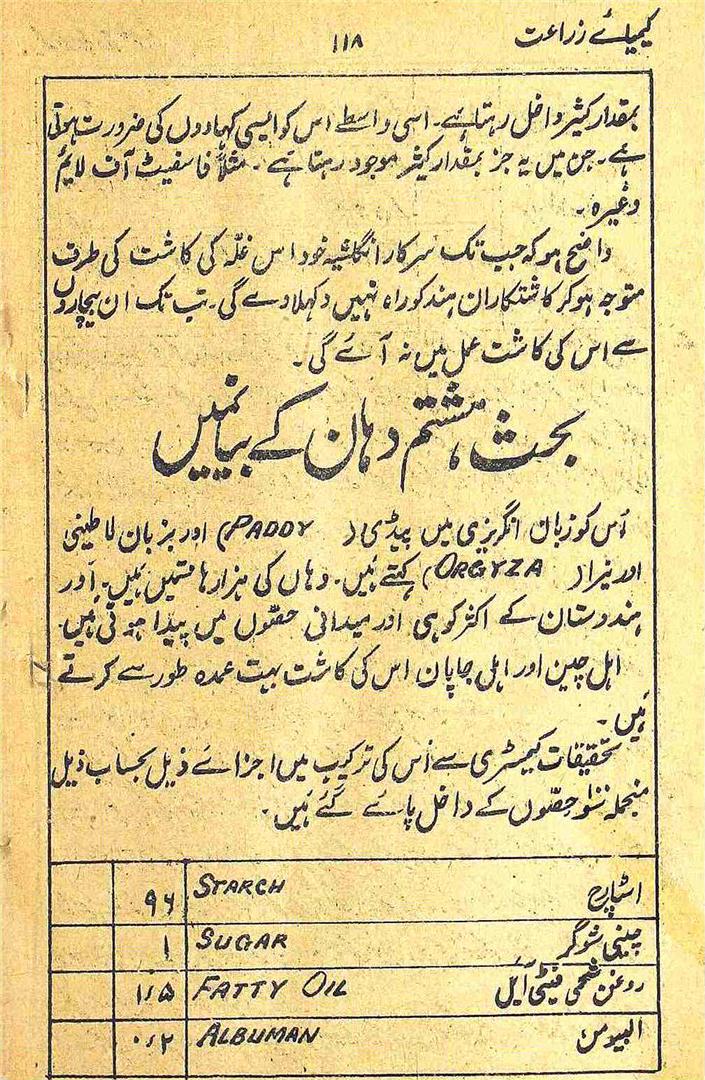 کیمیائے زراعت ۱۱۸
بمقدار کثیر داخل رہتا ہے۔ اسی واسطے اس کو ایسی کہادوں کی ضرورت ہوتی
ہے۔ جن میں یہ جز بمقدار کثیر موجود رہتا ہے۔ مثلاً فاسفیٹ آف لایم
وغیرہ۔
واضح ہو کہ جب تک سرکار انگلشیہ خود اس غلّہ کی کاشت کی طرف
متوجہ ہو کر کاشتکاران ہند کو راہ نہیں دکہلا دے گی۔ تب تک ان بیچاروں
سے اس کی کاشت عمل میں نہ آئے گی۔
بحث ہشتم دہان کے بیانمیں
اس کو زبان انگریزی میں پیڈی (PADDY) اور بزبان لاطینی
اوریزا (ORGYZA) کہتے ہیں۔ دہاں کی ہزارہا قسمیں ہیں۔ اور
ہندوستان کے اکثر کوہی اور میدانی حصّوں میں پیدا ہوتی ہیں۔
اہل چین اور اہل جاپان اس کی کاشت بہت عمدہ طور سے کرتے
ہیں۔
تحقیقات کیمسٹری سے اُس کی ترکیب میں اجزائے ذیل بحساب ذیل
منجملہ ننلو حصّوں کے داخل پائے گئے ہیں۔
اسٹارچ STARCH ۹۶
چینی شوگر SUGAR ۱
روغن شحمی فیٹی آیل FATTY OIL ۱٫۵
البیومن ALBUMAN ۰٫۲